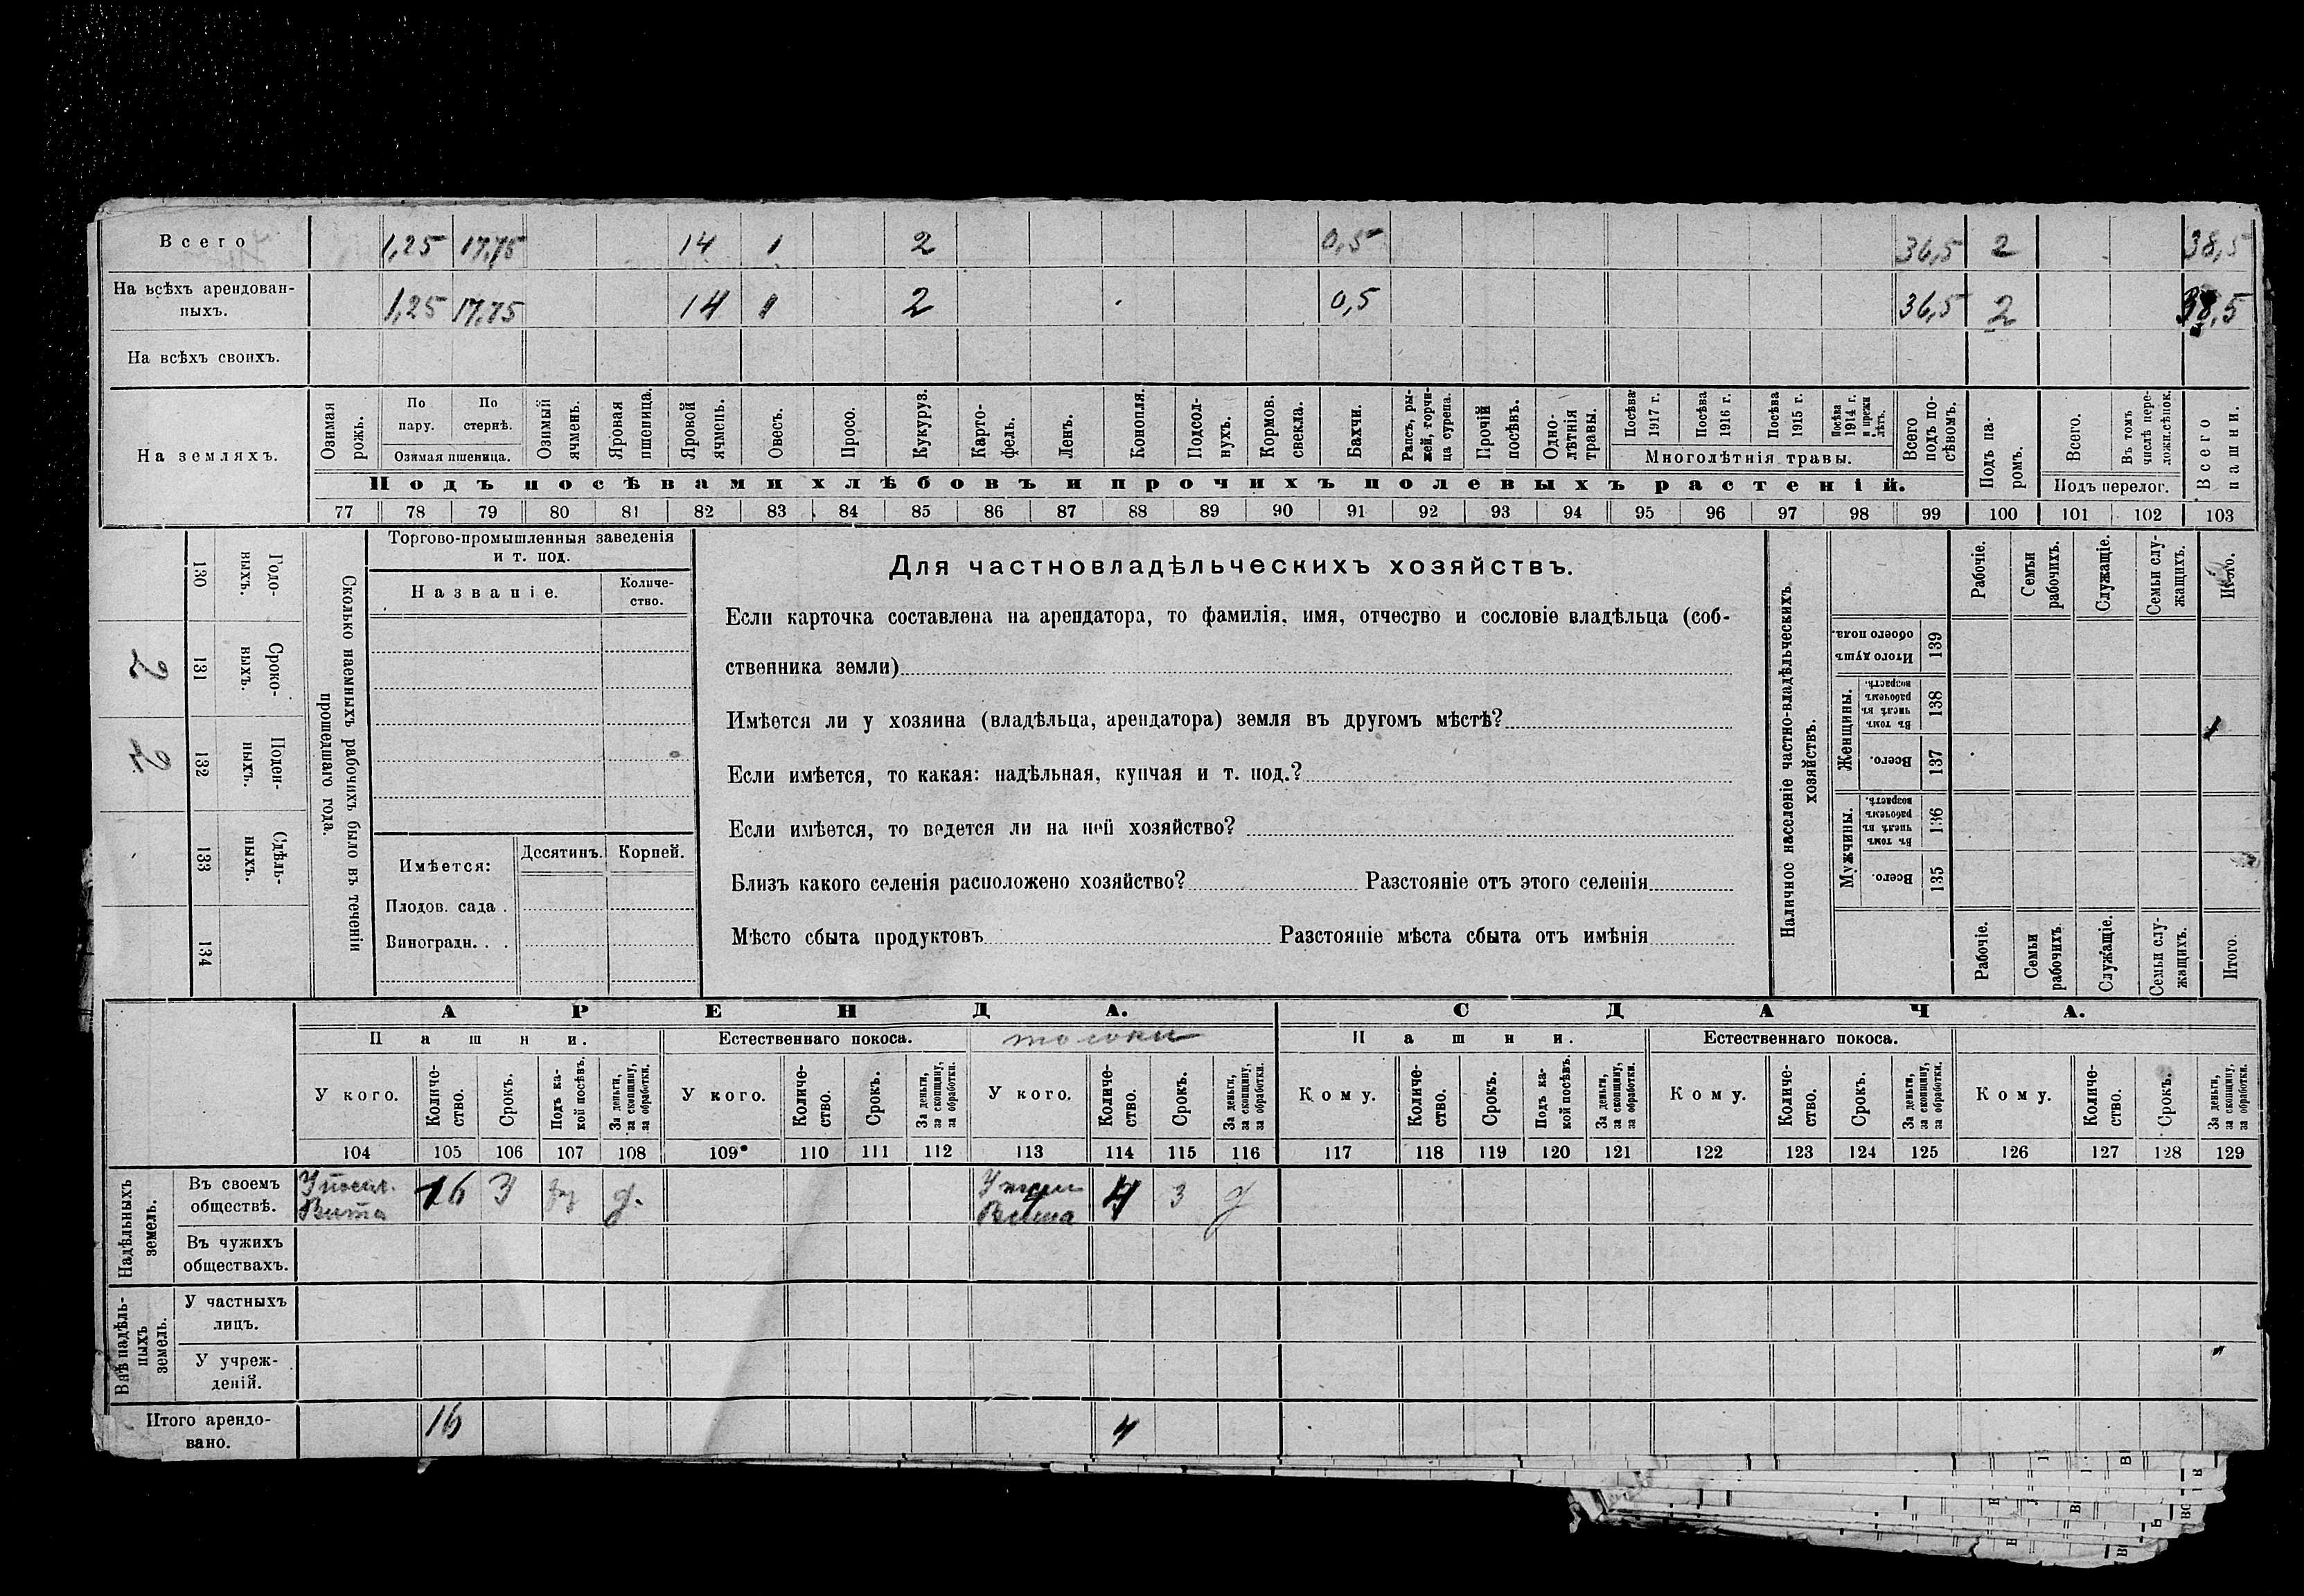 Всего 1,25 17,75 14 1 2 0,5 36,5 2 38,5
На всѣхъ арендован-
ныхъ. 1,25 17,75 14 1 2 0,5 36,5 2 38,5
На всѣхъ своихъ.
На земляхъ.
Озимая рожь.
По пару.
По стернѣ.
Озимая пшеница.
Озимый ячмень.
Яровая пшеница.
Яровой ячмень.
Овесъ.
Просо.
Кукуруз.
Карто-
фель.
Ленъ.
Конопля.
Подсол-
нухъ.
Кормов. свекла.
Бахчи.
Рапсъ, ры-
жей, горчи-
ца сурепа.
Прочій посѣвъ.
Одно-
лѣтнія травы.
Посѣва 1917 г.
Посѣва 1916 г.
Посѣва 1915 г.
Посѣва 1914 г. и прежн лѣтъ.
Многолѣтнія травы.
Всего подъ по-
сѣвомъ.
Подъ па-
ромъ.
Всего.
Въ томъ числѣ пере-
ложн.сѣнок.
Подъ перелог.
Всего пашни.
Подъ посѣвами хлѣбовъ и прочихъ полевыхъ растеній.
77 78 79 80 81 82 83 84 85 86 87 88 89 90 91 92 93 94 95 96 97 98 99 100 101 102 103
130 Годо-
ныхъ.
2 131 Сроко-
ныхъ.
2 132 Поден-
ныхъ.
133 Сдѣль-
ныхъ.
134
Сколько наемныхъ рабочихъ было въ теченіи
прошедшаго года.
Торгово-промышленныя заведенія
и т. под.
Названіе.
Количе-
ство.
Имѣется: Десятинъ. Корней.
Плодов. сада .
Виноградн. . .
Для частновладѣльческихъ хозяйствъ.
Если карточка составлена на арендатора, то фамилія, имя, отчество и сословіе владѣльца (соб-
ственника земли)
Имѣется ли у хозяина (владѣльца, арендатора) земля въ другомъ мѣстѣ?
Если имѣется, то какая: надѣльная, купчая и т. под.?
Если имѣется, то ведется ли на ней хозяйство?
Близъ какого селенія расположено хозяйство? Разстояніе отъ этого селенія
Мѣсто сбыта продуктовъ Разстояніе мѣста сбыта отъ имѣнія
Наличное населеніе частно-владѣльческихъ
хозяйствъ.
Рабочіе.
Семьи рабочихъ.
Служащіе.
Семьи слу-
жащихъ.
Итого.
Итого душъ обоего пола. 139
Женщины.
Въ томъ числѣ въ рабочемъ возрастѣ. 138
Всего. 137
Мужчины.
Въ томъ числѣ въ рабочемъ возрастѣ. 136
Всего. 135
Рабочіе.
Семьи рабочихъ.
Служащіе.
Семьи слу-
жащихъ.
Итого.
АРЕНДА. СДАЧА.
Пашни. Естественнаго покоса. толоки Пашни. Естественнаго покоса.
У кого.
Количе-
ство.
Срокъ.
Подъ ка-
кой посѣвъ.
За деньги, за скопщину, за обработки.
У кого.
Количе-
ство.
Срокъ.
За деньги, за скопщину, за обработки.
У кого.
Количе-
ство.
Срокъ.
За деньги, за скопщину, за обработки.
Кому.
Количе-
ство.
Срокъ.
Подъ ка-
кой посѣвъ.
За деньги, за скопщину, за обработки.
Кому.
Количе-
ство.
Срокъ.
За деньги, за скопщину, за обработки.
Кому.
Количе-
ство.
Срокъ.
За деньги, за скопщину, за обработки.
104 105 106 107 108 109 110 111 112 113 114 115 116 117 118 119 120 121 122 123 124 125 126 127 128 129
Надѣльныхъ земель.
Въ своемъ
обществѣ. 16 3 д. 4 3 д
Въ чужихъ
обществахъ.
Внѣ надѣль-
ныхъ земель.
У частныхъ
лицъ.
У учреж-
деній.
Итого арендо-
вано. 16 4